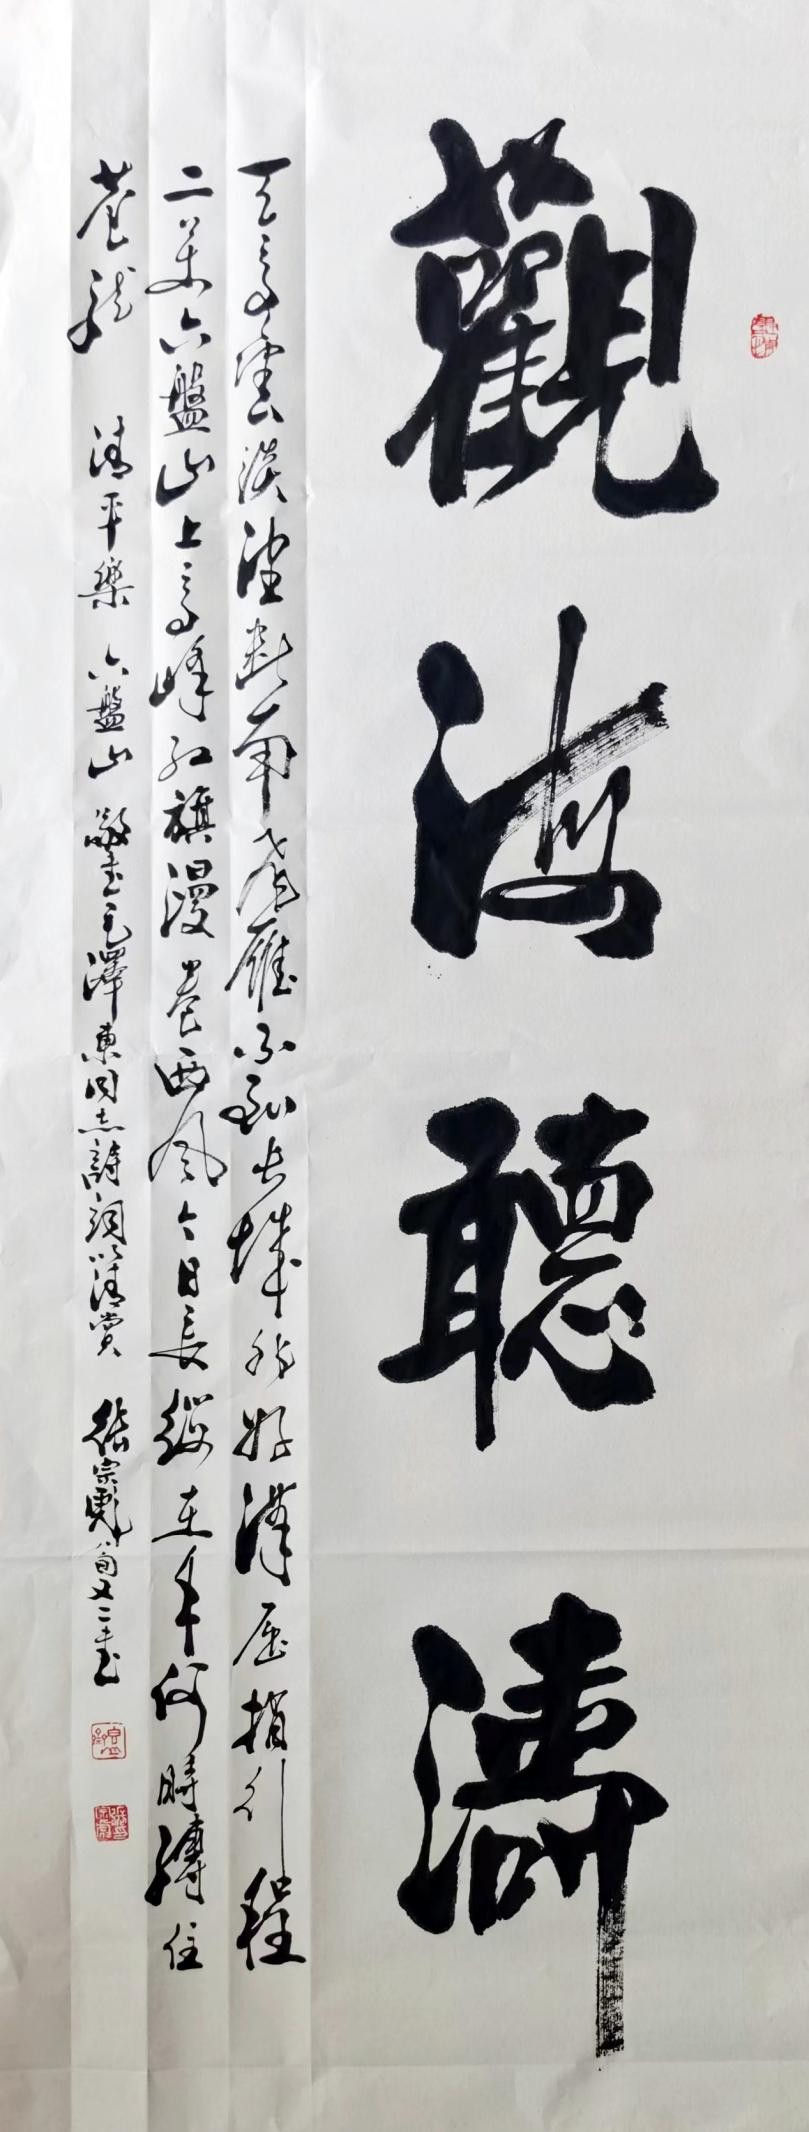 觀海聽濤
天高雲淡望斷南飛雁不到長城非好漢屈指行程
二萬六盤山上高峰紅旗漫卷西風今日長纓在手何時縛住
蒼龍 清平樂 六盤山 敬書毛澤東同志詩詞以清賞 張宗彪 旬又二書